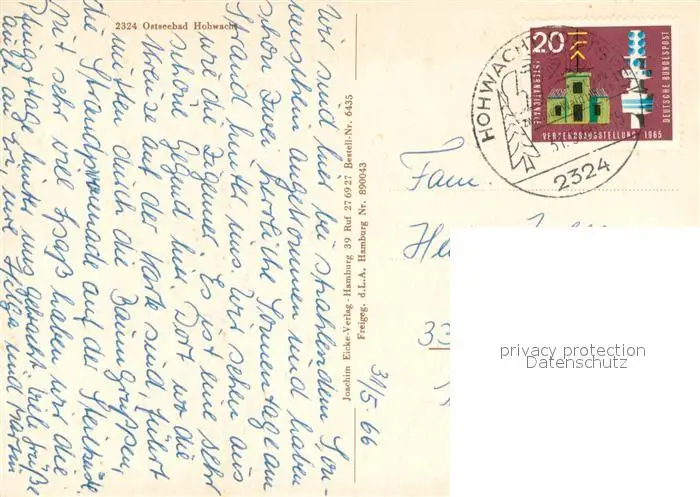 2324 Ostseebad Hohwacht
Wir sind hier bei strahlendem Son-
nenschein angekommen und haben
schon zwei herrliche Sonnentage am
Strand hinter uns. Wir sehen aus
wie die Zigeuner. Es ist eine sehr
schöne Gegend hier. Dort, wo die
Kreise auf der Karte sind, führt
mitten durch die Baumgruppen,
die Strandpromenade auf der Steilküste.
Mit sehr viel Spaß haben wir die
Pfingsttage hinter uns gebracht. Viele Grüße
auch an
Helga und
Joachim Eicke-Verlag - Hamburg 39 Ruf 27 69 27 Bestell-Nr. 6435
Freigeg. d. L.A. Hamburg Nr. 890043
31/5. 66
20
INTERNATIONALE
VERKEHRSAUSSTELLUNG 1965
DEUTSCHE BUNDESPOST
HOHWACHT
2324
Fam.
33
privacy protection
Datenschutz